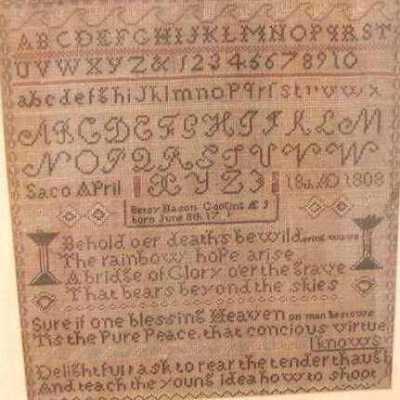 ABCDEFGHIJKLMNOPQRST
UVWXYZ&12345678910
abcdefghiJklmnoPqrſstuvwx
ABCDEFGHIJKLM
NOPQRSTUVW
Saco APril XYZ 1808
Betsy Bacon
born June 8th 17
Behold oer deaths bewildering wave
The rainbow hope arise
A bridge of Glory o'er the grave
That bears beyond the skies
Sure if one blessing Heaven on man bestows
Tis the Pure Peace that concious virtue
knows
Delightfull task to rear the tender thaught
And teach the young idea how to shoot